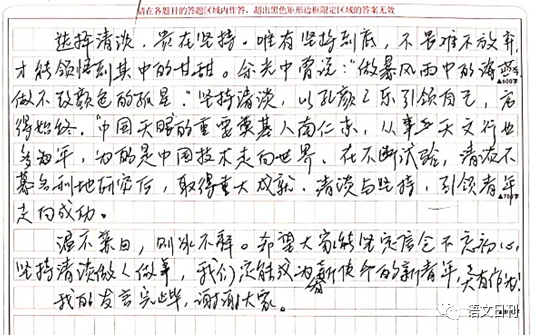 请在各题目的答题区域内作答,超出黑色矩形边框限定区域的答案无效
选择清淡,贵在坚持。唯有坚持到底,不畏难不放弃,
才能领悟到其中的甘甜。余光中曾说:“做暴风雨中的海燕,
做不改颜色的孤星。”坚持清淡,以孔颜之乐引领自己,方
得始终。“中国天眼的重要奠基人南仁东,从事天文行业
多年,为的是中国技术走向世界。在不断试验,清淡不
慕名利地研究后,取得重大成就。清淡与坚持,引领青年
走向成功。
温不兼日,则冰不释。希望大家能坚定信念不忘初心,
坚持清淡做人做事,我们定能成为新使命的新青年,大有作为!
我的发言完毕,谢谢大家。
▲600字
▲700字
语文日刊